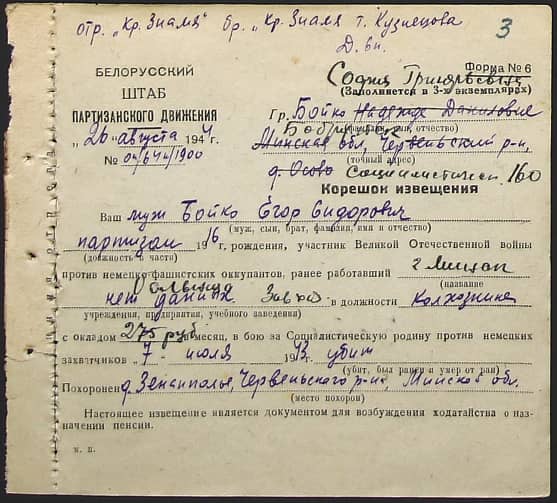 отр. „Кр. Знамя" бр. „Кр. Знамя т. Кузнецова
3
Д. вн.
Форма № 6
БЕЛОРУССКИЙ
ШТАБ
ПАРТИЗАНСКОГО ДВИЖЕНИЯ
„26" августа 1944 г.
№
(Заполняется в 3-х экземплярах)
Гр. Бойко Надежде Даниловне
(фамилия, имя, отчество)
Минская обл, Червенский р-н,
(точный адрес)
д. Осово Социалистическ. 160
Корешок извещения
Ваш муж Бойко Егор Сидорович
(муж, сын, брат, фамилия, имя и отчество)
партизан 1916, рождения, участник Великой Отечественной войны
(должность, часть)
против немецко-фашистских оккупантов, ранее работавший
(название
нет данных в должности колхозника
учреждения, предприятия, учебного заведения)
с окладом 275 руб месяц, в бою за Социалистическую родину против немецких
захватчиков „7" июля 1943 убит
(убит, был ранен и умер от ран)
Похоронен д. Червеньского р-на, Минской обл.
(место похорон)
Настоящее извещение является документом для возбуждения ходатайства о назначении пенсии.
м. п.